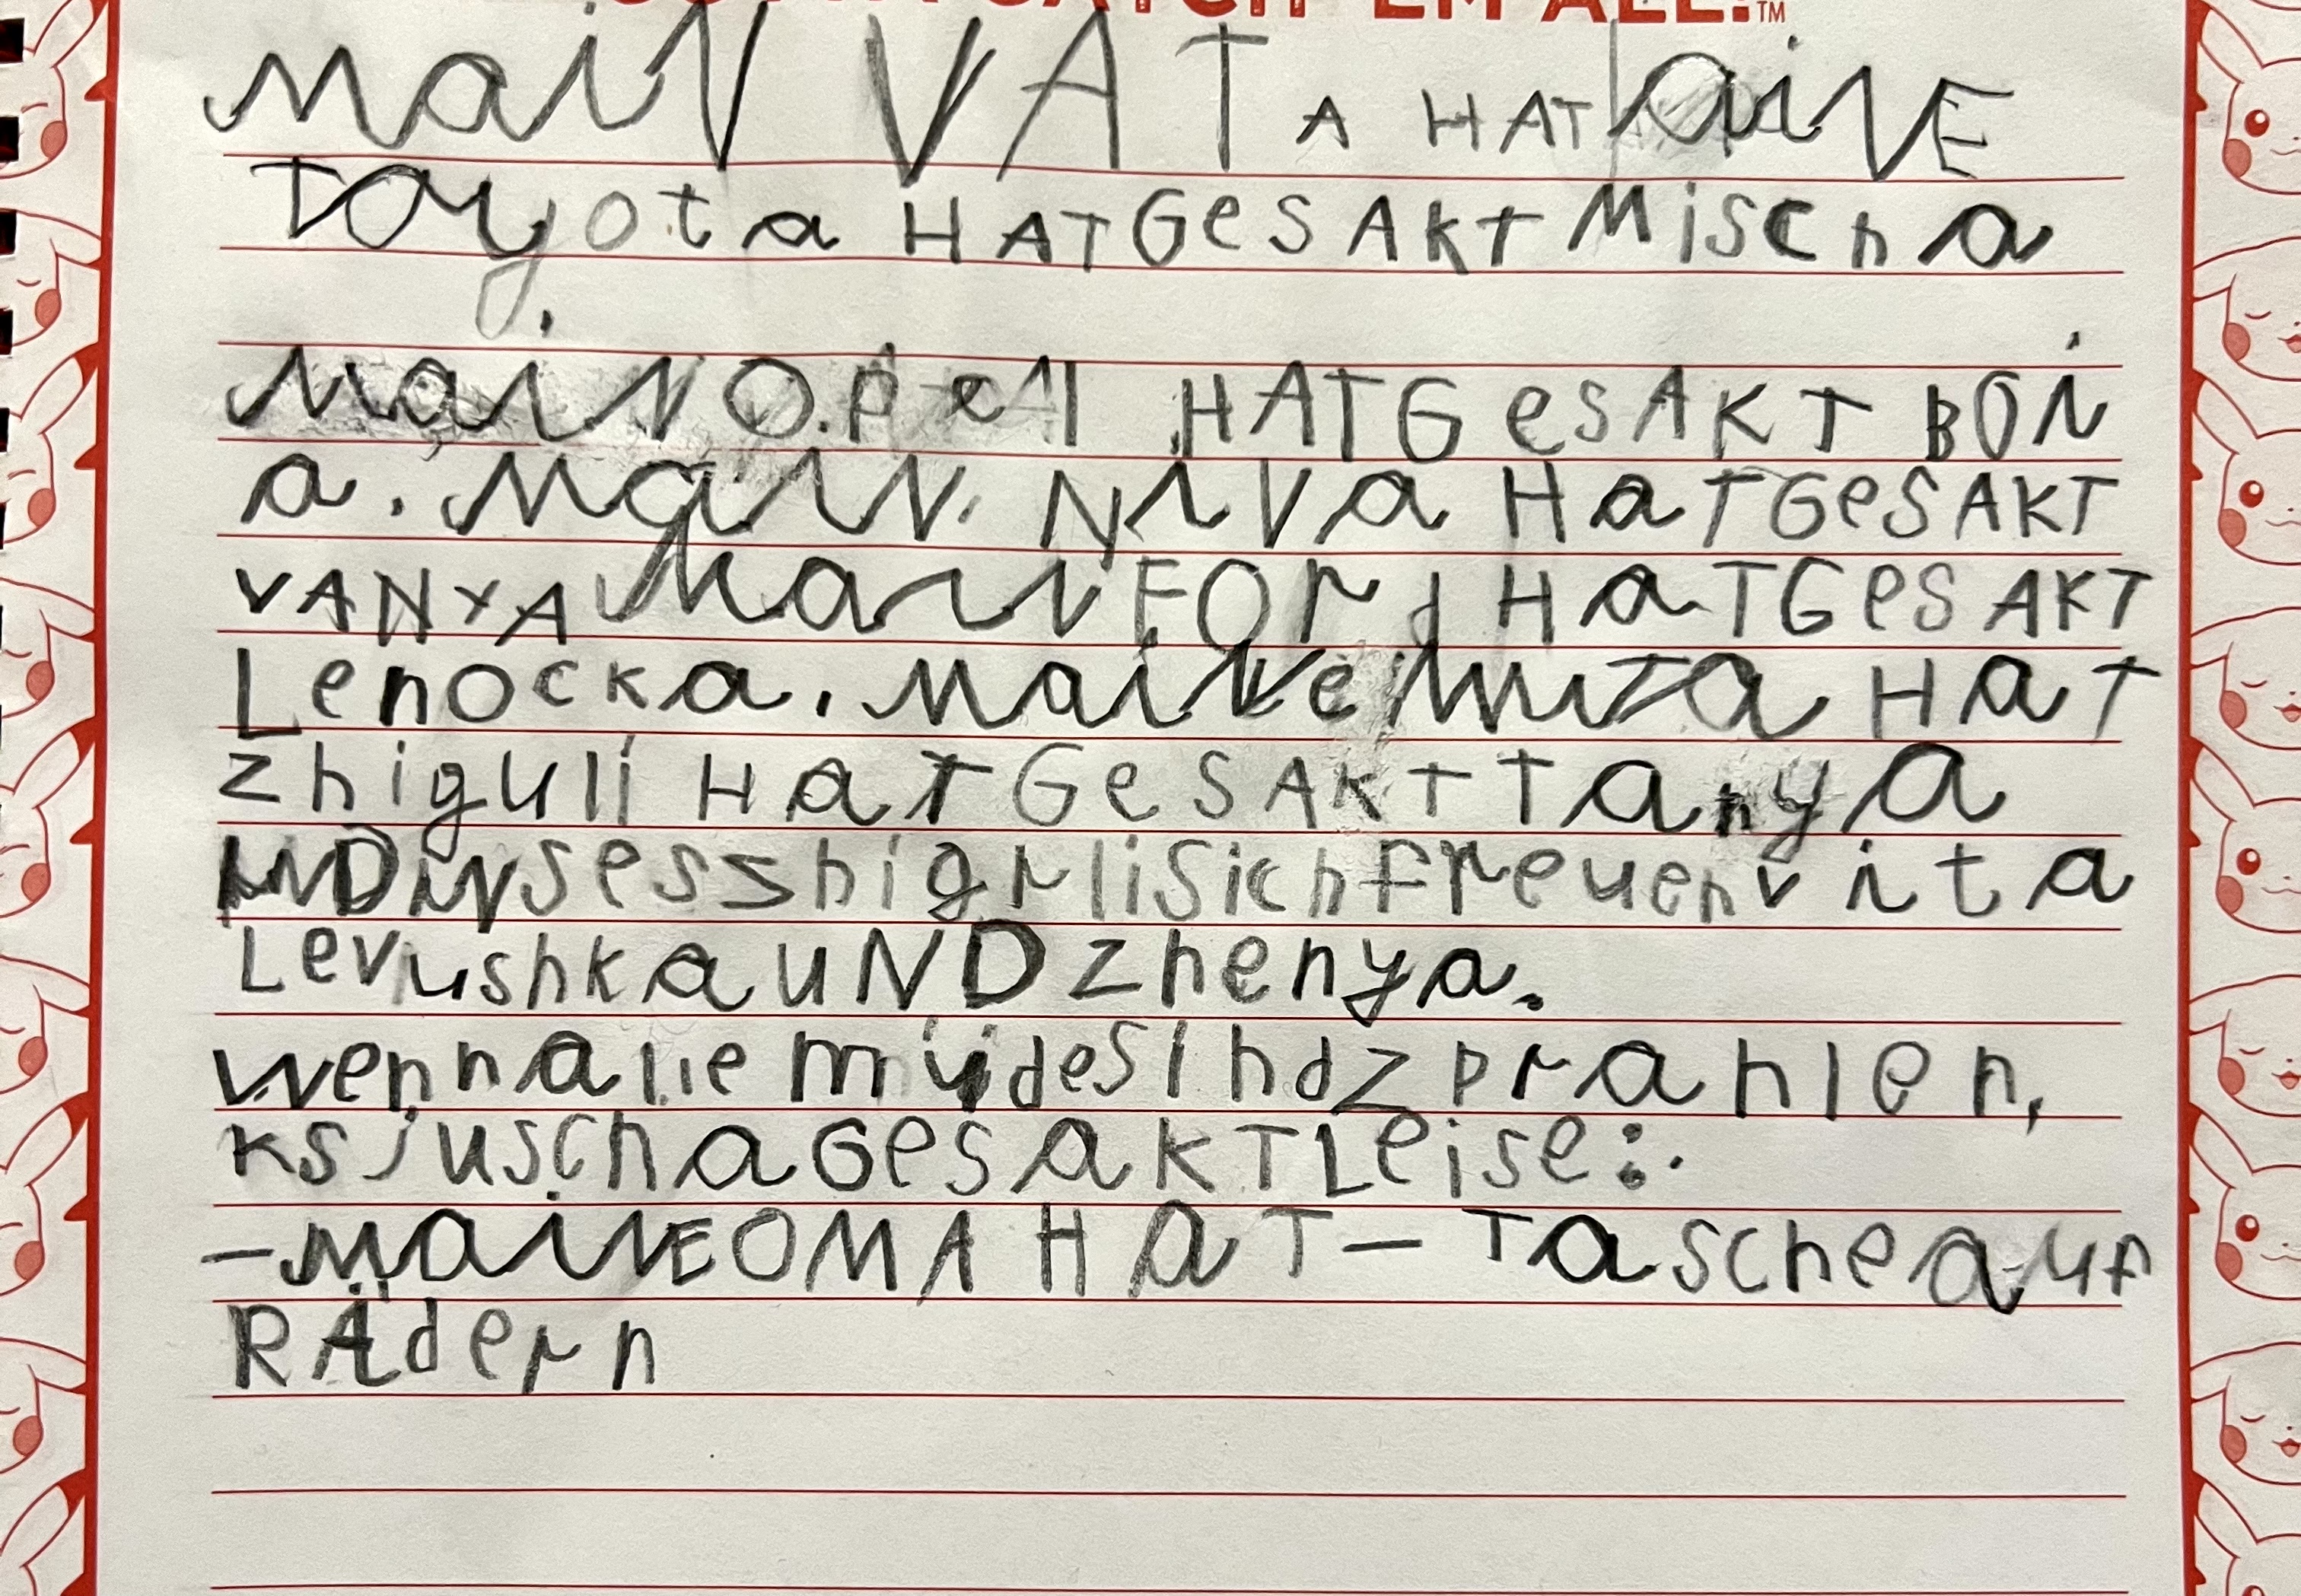 GOTTA CATCH 'EM ALL!™
MaiN VATA HAT aiNE
Toyota HAT GeSAKT Mischa
MaiN OPell HAT GeSAKT BOi
a. MaiN NiVa HaT GeSAKT
VANYA MaiN FOrd HaT GeSAKT
Lenocka. MaiNe MuTa HaT
Zhiguli HaT GeSAKT Tanya
UND iNses shigrli Sich freuen vita
Levushka UND Zhenya.
wenn alle müde Sind z prahlen,
Ksjuscha GesaKT Leise:
- MaiNE OMA HaT - Tasche auf
RÄdern